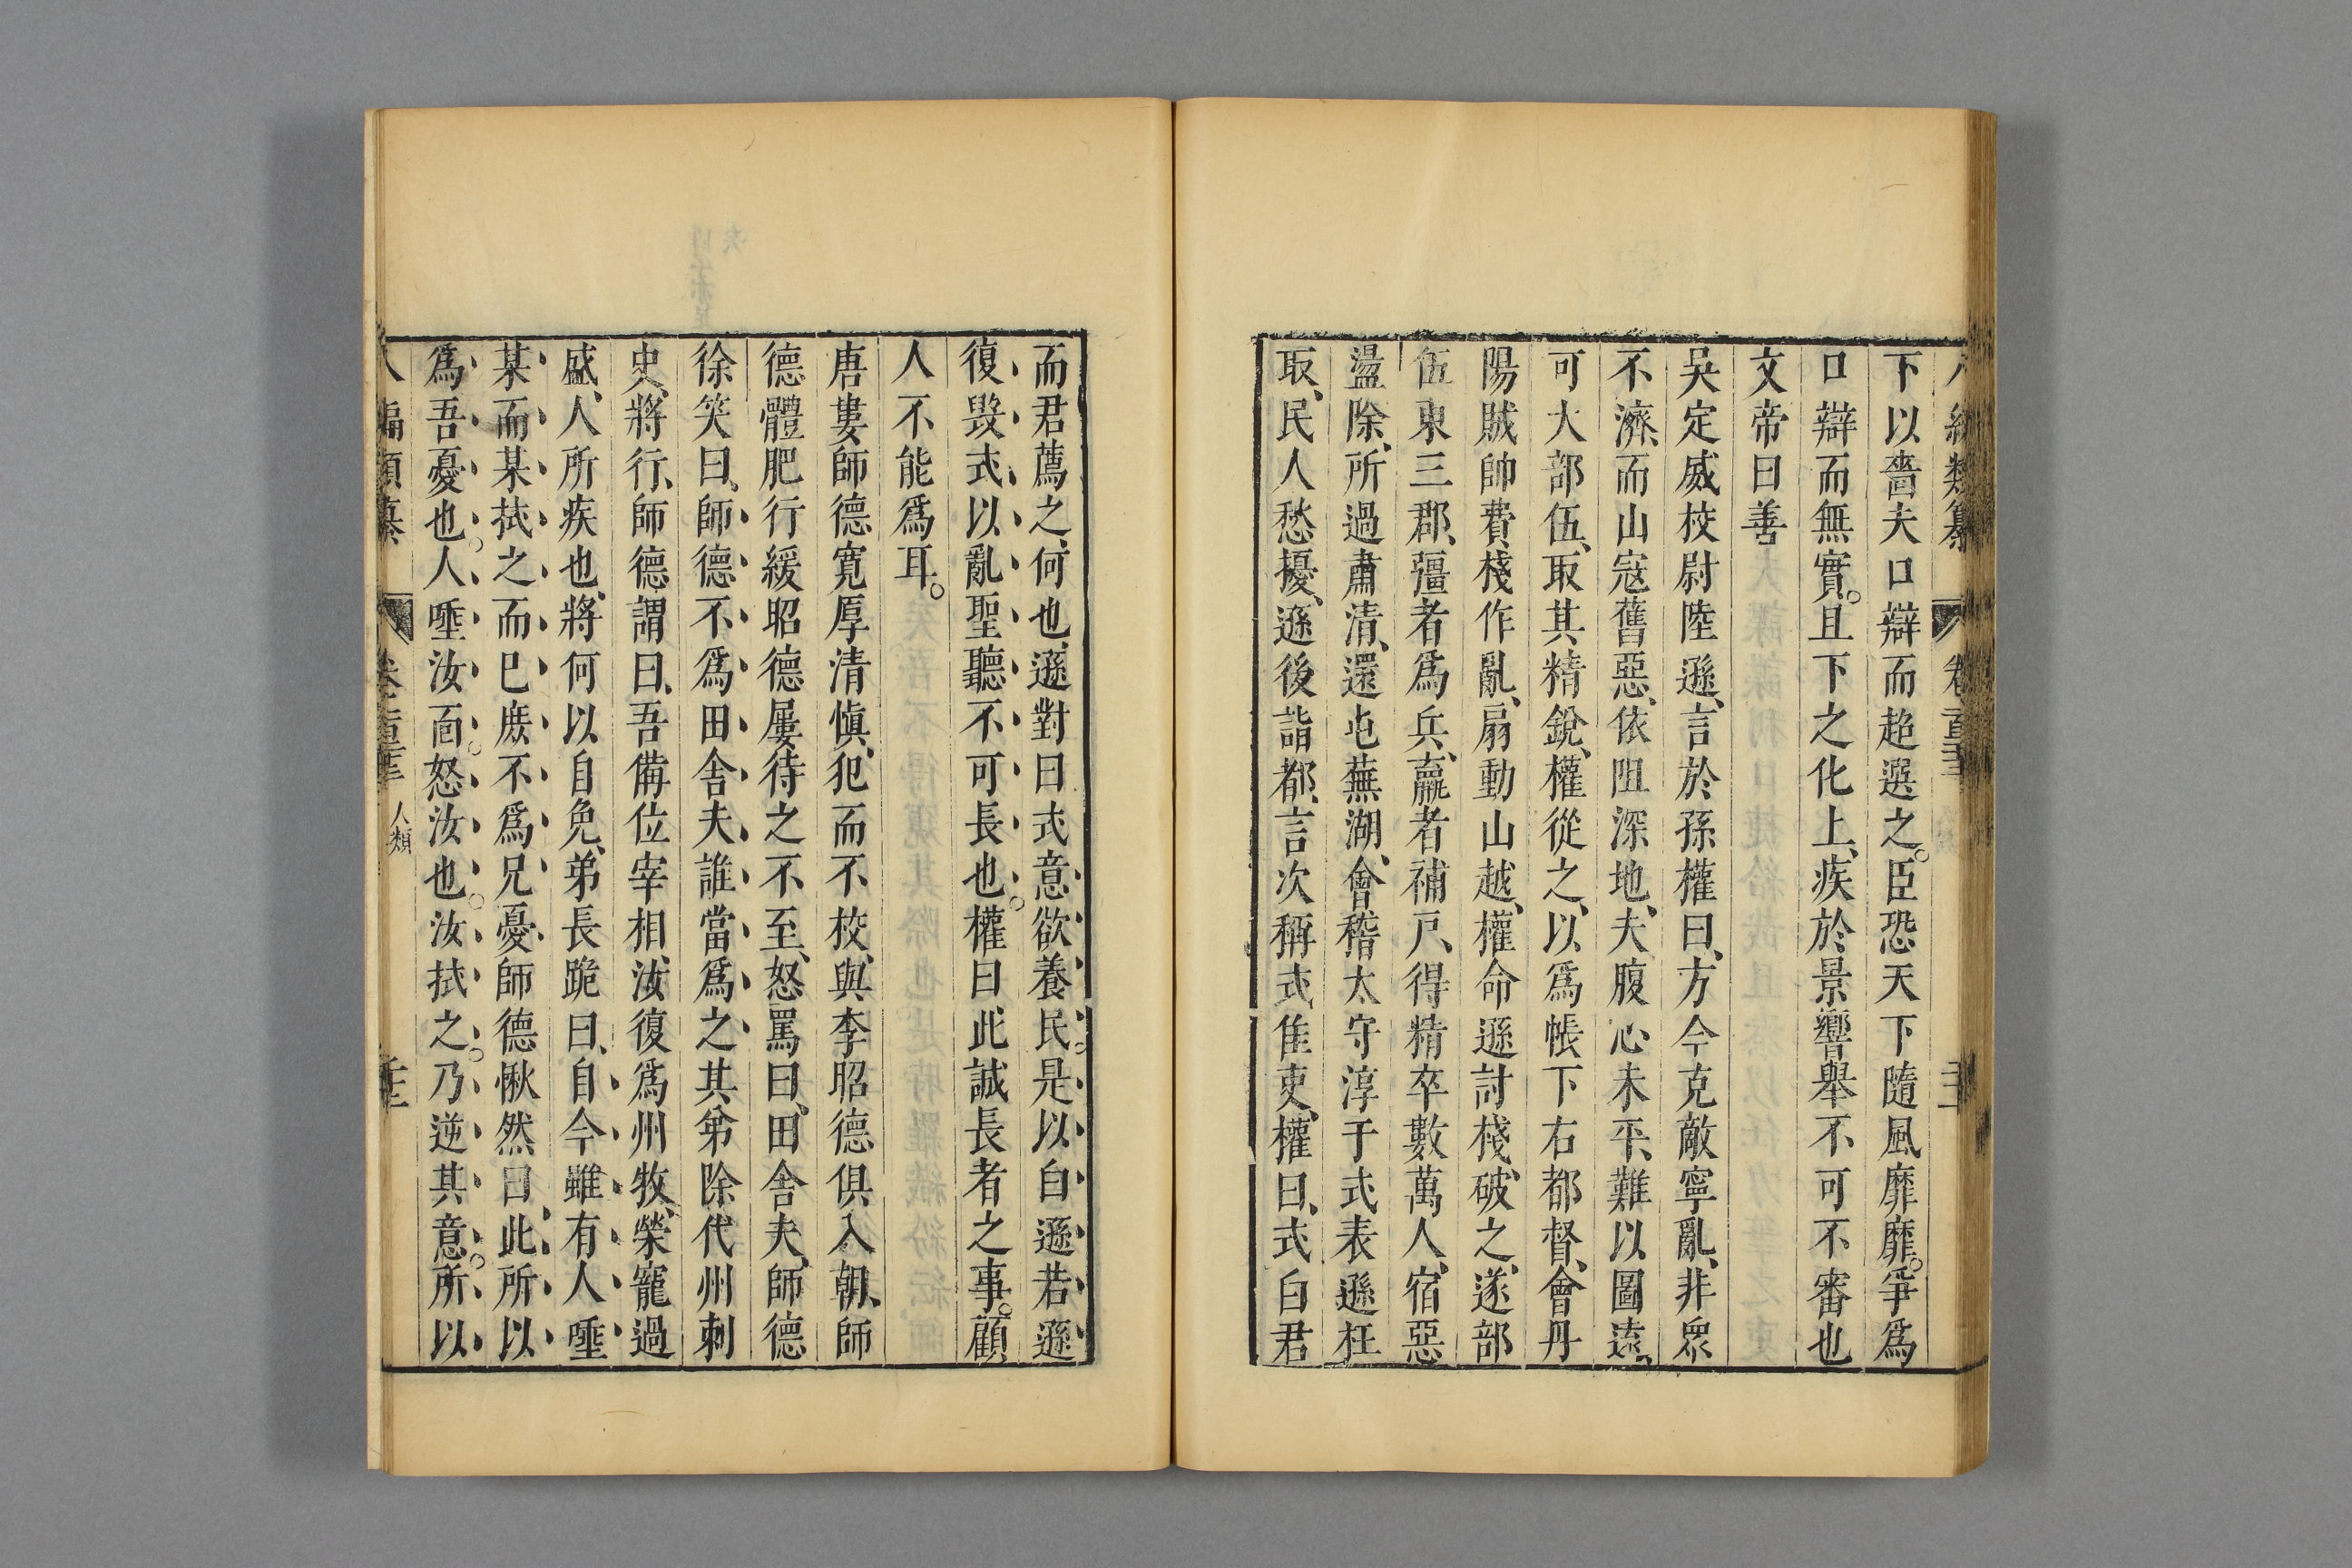 下以嗇夫口辯而超遷之。臣恐天下隨風靡靡。爭爲
口辯而無實。且下之化上、疾於景響舉不可不審也
文帝曰善
吳定威校尉陸遜、言於孫權曰、方今克敵寧亂、非眾
不濟、而山寇舊惡、依阻深地、夫腹心未平、難以圖遠、
可大部伍、取其精銳、權從之、以爲帳下右都督、會丹
陽賊帥費棧作亂、扇動山越、權命遜討棧、破之、遂部
伍東三郡、彊者爲兵、羸者補戶、得精卒數萬人、宿惡
盪除、所過肅清、還屯蕪湖、會稽太守淳于式表遜枉
取、民人愁擾、遜後詣都、言次稱式佳吏、權曰、式白君
而君薦之、何也、遜對曰式意欲養民。是以白遜若遜
復毀式以亂聖聽不可長也。權曰、此誠長者之事。顧
人不能爲耳。
唐婁師德寬厚清愼、犯而不校、與李昭德俱入朝、師
德體肥行緩昭德屢待之不至、怒罵曰、田舍夫、師德
徐笑曰、師德不爲田舍夫、誰當爲之、其弟除代州刺
史、將行、師德謂曰、吾備位宰相、汝復爲州牧、榮寵過
盛、人所疾也、將何以自免、弟長跪曰、自今雖有人唾
某而某拭之而已庶不爲兄憂師德愀然曰、此所以
爲吾憂也。人唾汝面。怒汝也。汝拭之。乃逆其意。所以
編類纂 卷之 人類